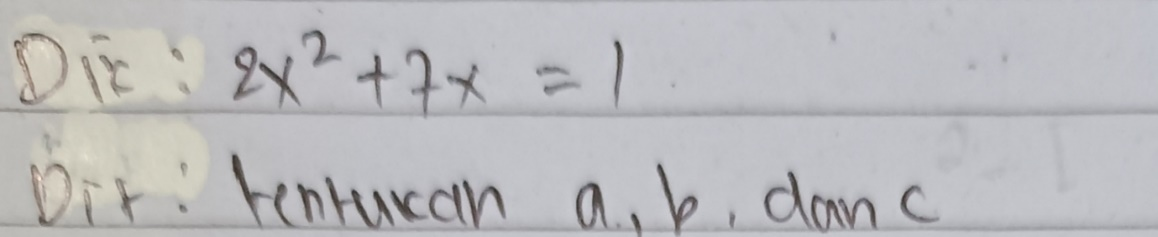 Dik : 2x² + 7x = 1
Dit : tentukan a, b, dan c